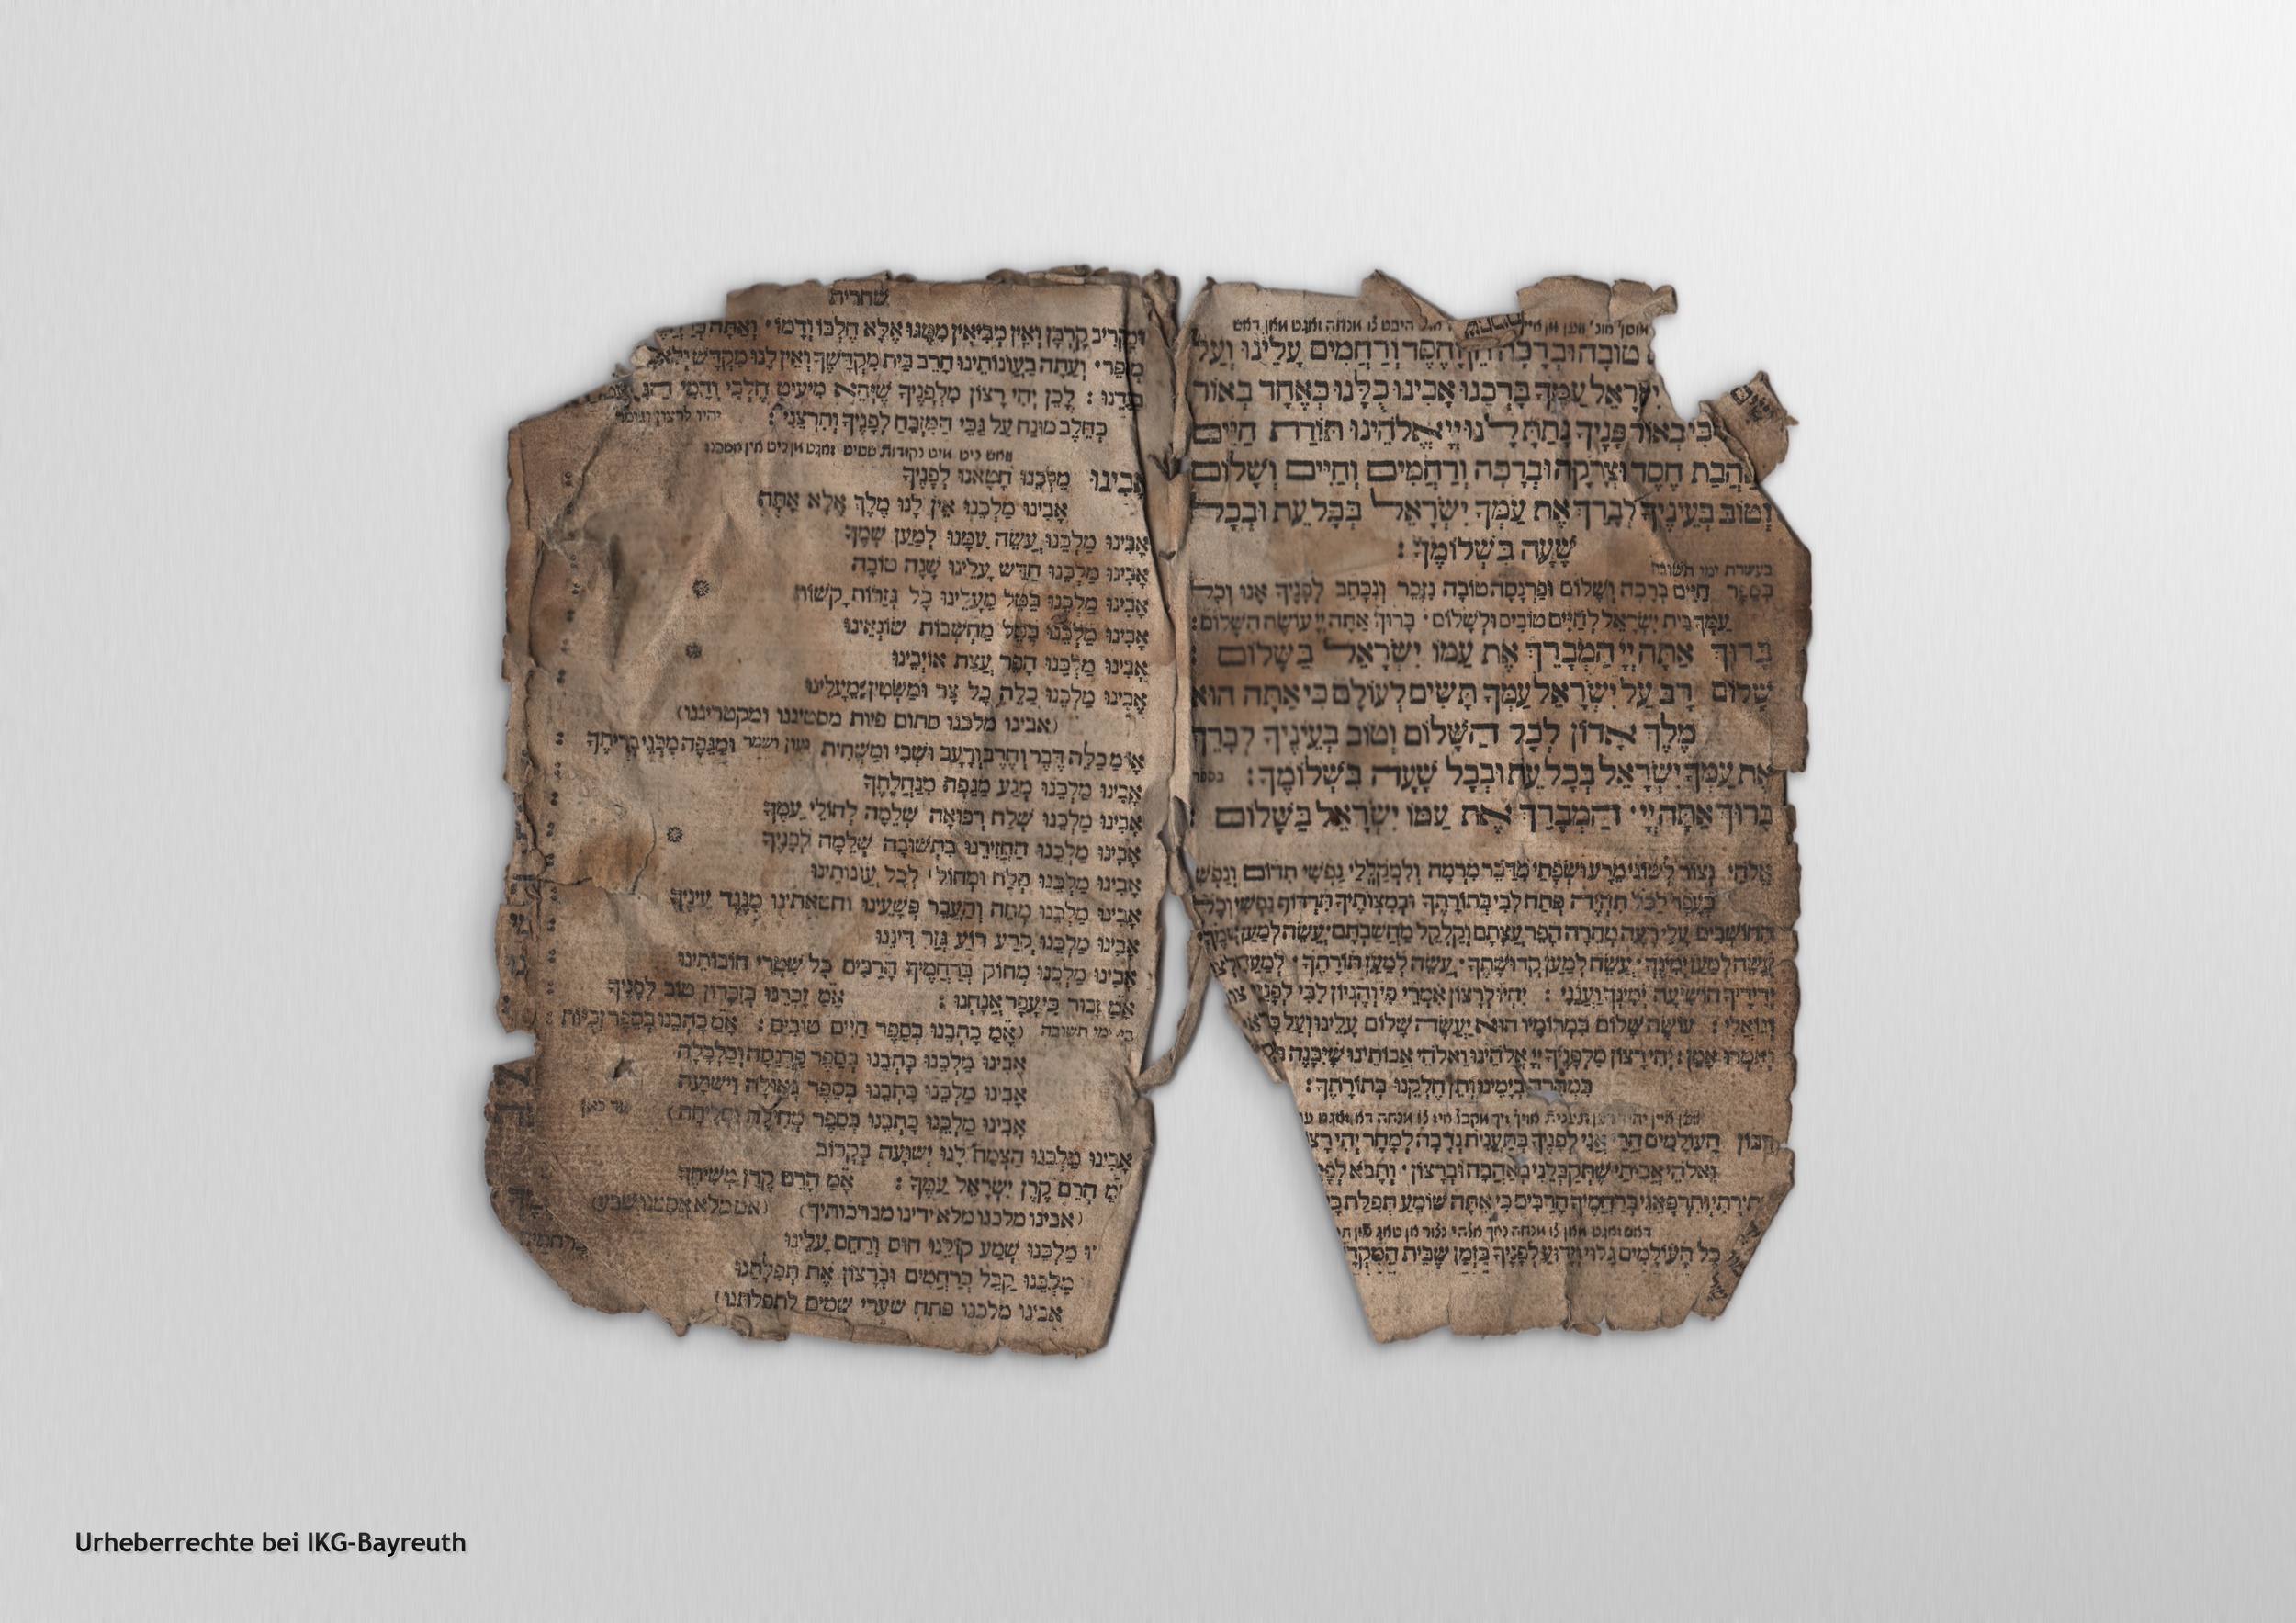 טוֹבָה וּבְרָכָה חֵן וָחֶסֶד וְרַחֲמִים עָלֵינוּ וְעַל
יִשְׂרָאֵל עַמֶּךָ בָּרְכֵנוּ אָבִינוּ כֻּלָּנוּ כְּאֶחָד בְּאוֹר
כִּי בְאוֹר פָּנֶיךָ נָתַתָּ לָּנוּ יְיָ אֱלֹהֵינוּ תּוֹרַת חַיִּים
וְאַהֲבַת חֶסֶד וּצְדָקָה וּבְרָכָה וְרַחֲמִים וְחַיִּים וְשָׁלוֹם
וְטוֹב בְּעֵינֶיךָ לְבָרֵךְ אֶת עַמְּךָ יִשְׂרָאֵל בְּכָל עֵת וּבְכָל
שָׁעָה בִּשְׁלוֹמֶךָ :
בעשרת ימי תשובה
בְּסֵפֶר חַיִּים בְּרָכָה וְשָׁלוֹם וּפַרְנָסָה טוֹבָה נִזָּכֵר וְנִכָּתֵב לְפָנֶיךָ אָנוּ וְכָל
עַמְּךָ בֵּית יִשְׂרָאֵל לְחַיִּים טוֹבִים וּלְשָׁלוֹם · בָּרוּךְ אַתָּה יְיָ עוֹשֵׂה הַשָּׁלוֹם :
בָּרוּךְ אַתָּה יְיָ הַמְבָרֵךְ אֶת עַמּוֹ יִשְׂרָאֵל בַּשָּׁלוֹם :
שָׁלוֹם רָב עַל יִשְׂרָאֵל עַמְּךָ תָּשִׂים לְעוֹלָם כִּי אַתָּה הוּא
מֶלֶךְ אָדוֹן לְכָל הַשָּׁלוֹם וְטוֹב בְּעֵינֶיךָ לְבָרֵךְ
אֶת עַמְּךָ יִשְׂרָאֵל בְּכָל עֵת וּבְכָל שָׁעָה בִּשְׁלוֹמֶךָ : בספר
בָּרוּךְ אַתָּה יְיָ · הַמְבָרֵךְ אֶת עַמּוֹ יִשְׂרָאֵל בַּשָּׁלוֹם :
אֱלֹהַי נְצוֹר לְשׁוֹנִי מֵרָע וּשְׂפָתַי מִדַּבֵּר מִרְמָה וְלִמְקַלְלַי נַפְשִׁי תִדּוֹם וְנַפְשִׁי
כֶּעָפָר לַכֹּל תִּהְיֶה פְּתַח לִבִּי בְּתוֹרָתֶךָ וּבְמִצְוֹתֶיךָ תִּרְדּוֹף נַפְשִׁי וְכָל
הַחוֹשְׁבִים עָלַי רָעָה מְהֵרָה הָפֵר עֲצָתָם וְקַלְקֵל מַחֲשַׁבְתָּם · עֲשֵׂה לְמַעַן שְׁמֶךָ
עֲשֵׂה לְמַעַן יְמִינֶךָ · עֲשֵׂה לְמַעַן קְדוּשָּׁתֶךָ · עֲשֵׂה לְמַעַן תּוֹרָתֶךָ · לְמַעַן יֵחָלְצוּן
יְדִידֶיךָ הוֹשִׁיעָה יְמִינְךָ וַעֲנֵנִי : יִהְיוּ לְרָצוֹן אִמְרֵי פִי וְהֶגְיוֹן לִבִּי לְפָנֶיךָ יְיָ צוּרִי
וְגוֹאֲלִי : עוֹשֶׂה שָׁלוֹם בִּמְרוֹמָיו הוּא יַעֲשֶׂה שָׁלוֹם עָלֵינוּ וְעַל
וְאִמְרוּ אָמֵן : יְהִי רָצוֹן מִלְּפָנֶיךָ יְיָ אֱלֹהֵינוּ וֵאלֹהֵי אֲבוֹתֵינוּ שֶׁיִּבָּנֶה
בִּמְהֵרָה בְיָמֵינוּ וְתֵן חֶלְקֵנוּ בְּתוֹרָתֶךָ :
רִבּוֹן הָעוֹלָמִים הֲרֵי אֲנִי לְפָנֶיךָ בְּתַעֲנִית נְדָבָה לְמָחָר יְהִי רָצוֹן
וֵאלֹהֵי אֲבוֹתַי שֶׁתְּקַבְּלֵנִי בְּאַהֲבָה וּבְרָצוֹן · וְתָבֹא
וְתִרְפָּאֵנִי בְּרַחֲמֶיךָ הָרַבִּים כִּי אַתָּה שׁוֹמֵעַ תְּפִלַּת
כָל הָעוֹלָמִים גָּלוּי וְיָדוּעַ לְפָנֶיךָ בִּזְמַן שֶׁבֵּית הַמִּקְדָּשׁ
שחרית
וּמַקְרִיב קָרְבָּן וְאֵין מְבִיאִין מִמֶּנּוּ אֶלָּא חֶלְבּוֹ וְדָמוֹ · וְאַתָּה
מְכַפֵּר · וְעַתָּה בַּעֲוֹנוֹתֵינוּ חָרַב בֵּית מִקְדָּשֶׁךָ וְאֵין לָנוּ מִקְדָּשׁ וְלֹא
בַּעֲדֵנוּ : לָכֵן יְהִי רָצוֹן מִלְּפָנֶיךָ שֶׁיְּהֵא מִיעוּט חֶלְבִּי וְדָמִי
כְּחֵלֶב מוּנָח עַל גַּבֵּי הַמִּזְבֵּחַ לְפָנֶיךָ וְתִרְצֵנִי : יהיו לרצון
אָבִינוּ מַלְכֵּנוּ חָטָאנוּ לְפָנֶיךָ
אָבִינוּ מַלְכֵּנוּ אֵין לָנוּ מֶלֶךְ אֶלָּא אַתָּה
אָבִינוּ מַלְכֵּנוּ עֲשֵׂה עִמָּנוּ לְמַעַן שְׁמֶךָ
אָבִינוּ מַלְכֵּנוּ חַדֵּשׁ עָלֵינוּ שָׁנָה טוֹבָה
אָבִינוּ מַלְכֵּנוּ בַּטֵּל מֵעָלֵינוּ כָּל גְּזֵרוֹת קָשׁוֹת
אָבִינוּ מַלְכֵּנוּ בַּטֵּל מַחְשְׁבוֹת שׂוֹנְאֵינוּ
אָבִינוּ מַלְכֵּנוּ הָפֵר עֲצַת אוֹיְבֵינוּ
אָבִינוּ מַלְכֵּנוּ כַּלֵּה כָּל צַר וּמַשְׂטִין מֵעָלֵינוּ
(אבינו מלכנו סתום פיות מסטיננו ומקטריגנו)
אָ֗מַ כַּלֵּה דֶּבֶר וְחֶרֶב וְרָעָב וּשְׁבִי וּמַשְׁחִית ועון ושמד וּמַגֵּפָה מִבְּנֵי בְרִיתֶךָ
אָבִינוּ מַלְכֵּנוּ מְנַע מַגֵּפָה מִנַּחֲלָתֶךָ
אָבִינוּ מַלְכֵּנוּ שְׁלַח רְפוּאָה שְׁלֵמָה לְחוֹלֵי עַמֶּךָ
אָבִינוּ מַלְכֵּנוּ הַחֲזִירֵנוּ בִּתְשׁוּבָה שְׁלֵמָה לְפָנֶיךָ
אָבִינוּ מַלְכֵּנוּ סְלַח וּמְחוֹל לְכָל עֲוֹנוֹתֵינוּ
אָבִינוּ מַלְכֵּנוּ מְחֵה וְהַעֲבֵר פְּשָׁעֵינוּ וחטאתינו מִנֶּגֶד עֵינֶיךָ
אָבִינוּ מַלְכֵּנוּ קְרַע רוֹעַ גְּזַר דִּינֵנוּ
אָבִינוּ מַלְכֵּנוּ מְחוֹק בְּרַחֲמֶיךָ הָרַבִּים כָּל שִׁטְרֵי חוֹבוֹתֵינוּ
אָ֗מַ זְכוֹר כִּי עָפָר אֲנָחְנוּ : אָ֗מַ זָכְרֵנוּ בְּזִכָּרוֹן טוֹב לְפָנֶיךָ
בי' ימי תשובה (אָ֗מַ כָּתְבֵנוּ בְּסֵפֶר חַיִּים טוֹבִים : אָ֗מַ כָּתְבֵנוּ בְּסֵפֶר זְכִיּוֹת
אָבִינוּ מַלְכֵּנוּ כָּתְבֵנוּ בְּסֵפֶר פַּרְנָסָה וְכַלְכָּלָה
אָבִינוּ מַלְכֵּנוּ כָּתְבֵנוּ בְּסֵפֶר גְּאוּלָּה וִישׁוּעָה
אָבִינוּ מַלְכֵּנוּ כָּתְבֵנוּ בְּסֵפֶר מְחִילָה וּסְלִיחָה) עד כאן
אָבִינוּ מַלְכֵּנוּ הַצְמַח לָנוּ יְשׁוּעָה בְּקָרוֹב
הָרֵם קֶרֶן יִשְׂרָאֵל עַמֶּךָ : אָ֗מַ הָרֵם קֶרֶן מְשִׁיחֶךָ
(אבינו מלכנו מלא ידינו מברכותיך)
מַלְכֵּנוּ שְׁמַע קוֹלֵנוּ חוּס וְרַחֵם עָלֵינוּ
מַלְכֵּנוּ קַבֵּל בְּרַחֲמִים וּבְרָצוֹן אֶת תְּפִלָּתֵנוּ
אבינו מלכנו פתח שערי שמים לתפלתנו)
Urheberrechte bei IKG-Bayreuth